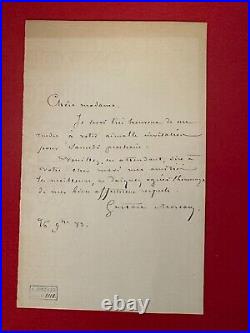 Chère madame.
Je serai très heureux de me
rendre à votre aimable invitation
pour Samedi prochain.
Veuillez, en attendant, dire à
votre cher mari mes amitiés
les meilleures, et daignez agréer l'hommage
de mes bien affectueux respects.
Gustave Moreau
16 9bre 83.